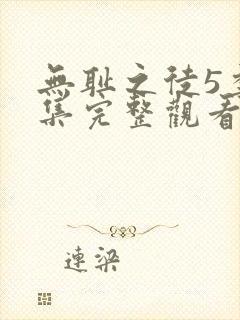 無耻之徒5季
集完整觀看
連梁